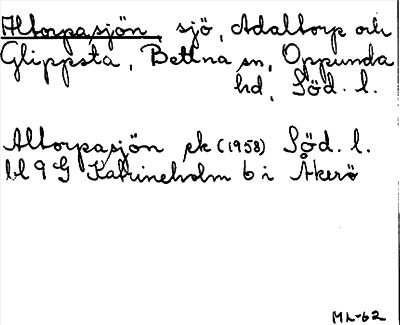 Altorpasjön, sjö, Adaltorp och
Glippsta, Bettna sn, Oppunda
hd, Söd. l.
Altorpasjön ek (1958) Söd. l.
bl 9 G Katrineholm 6 i Åkerö
ML-62